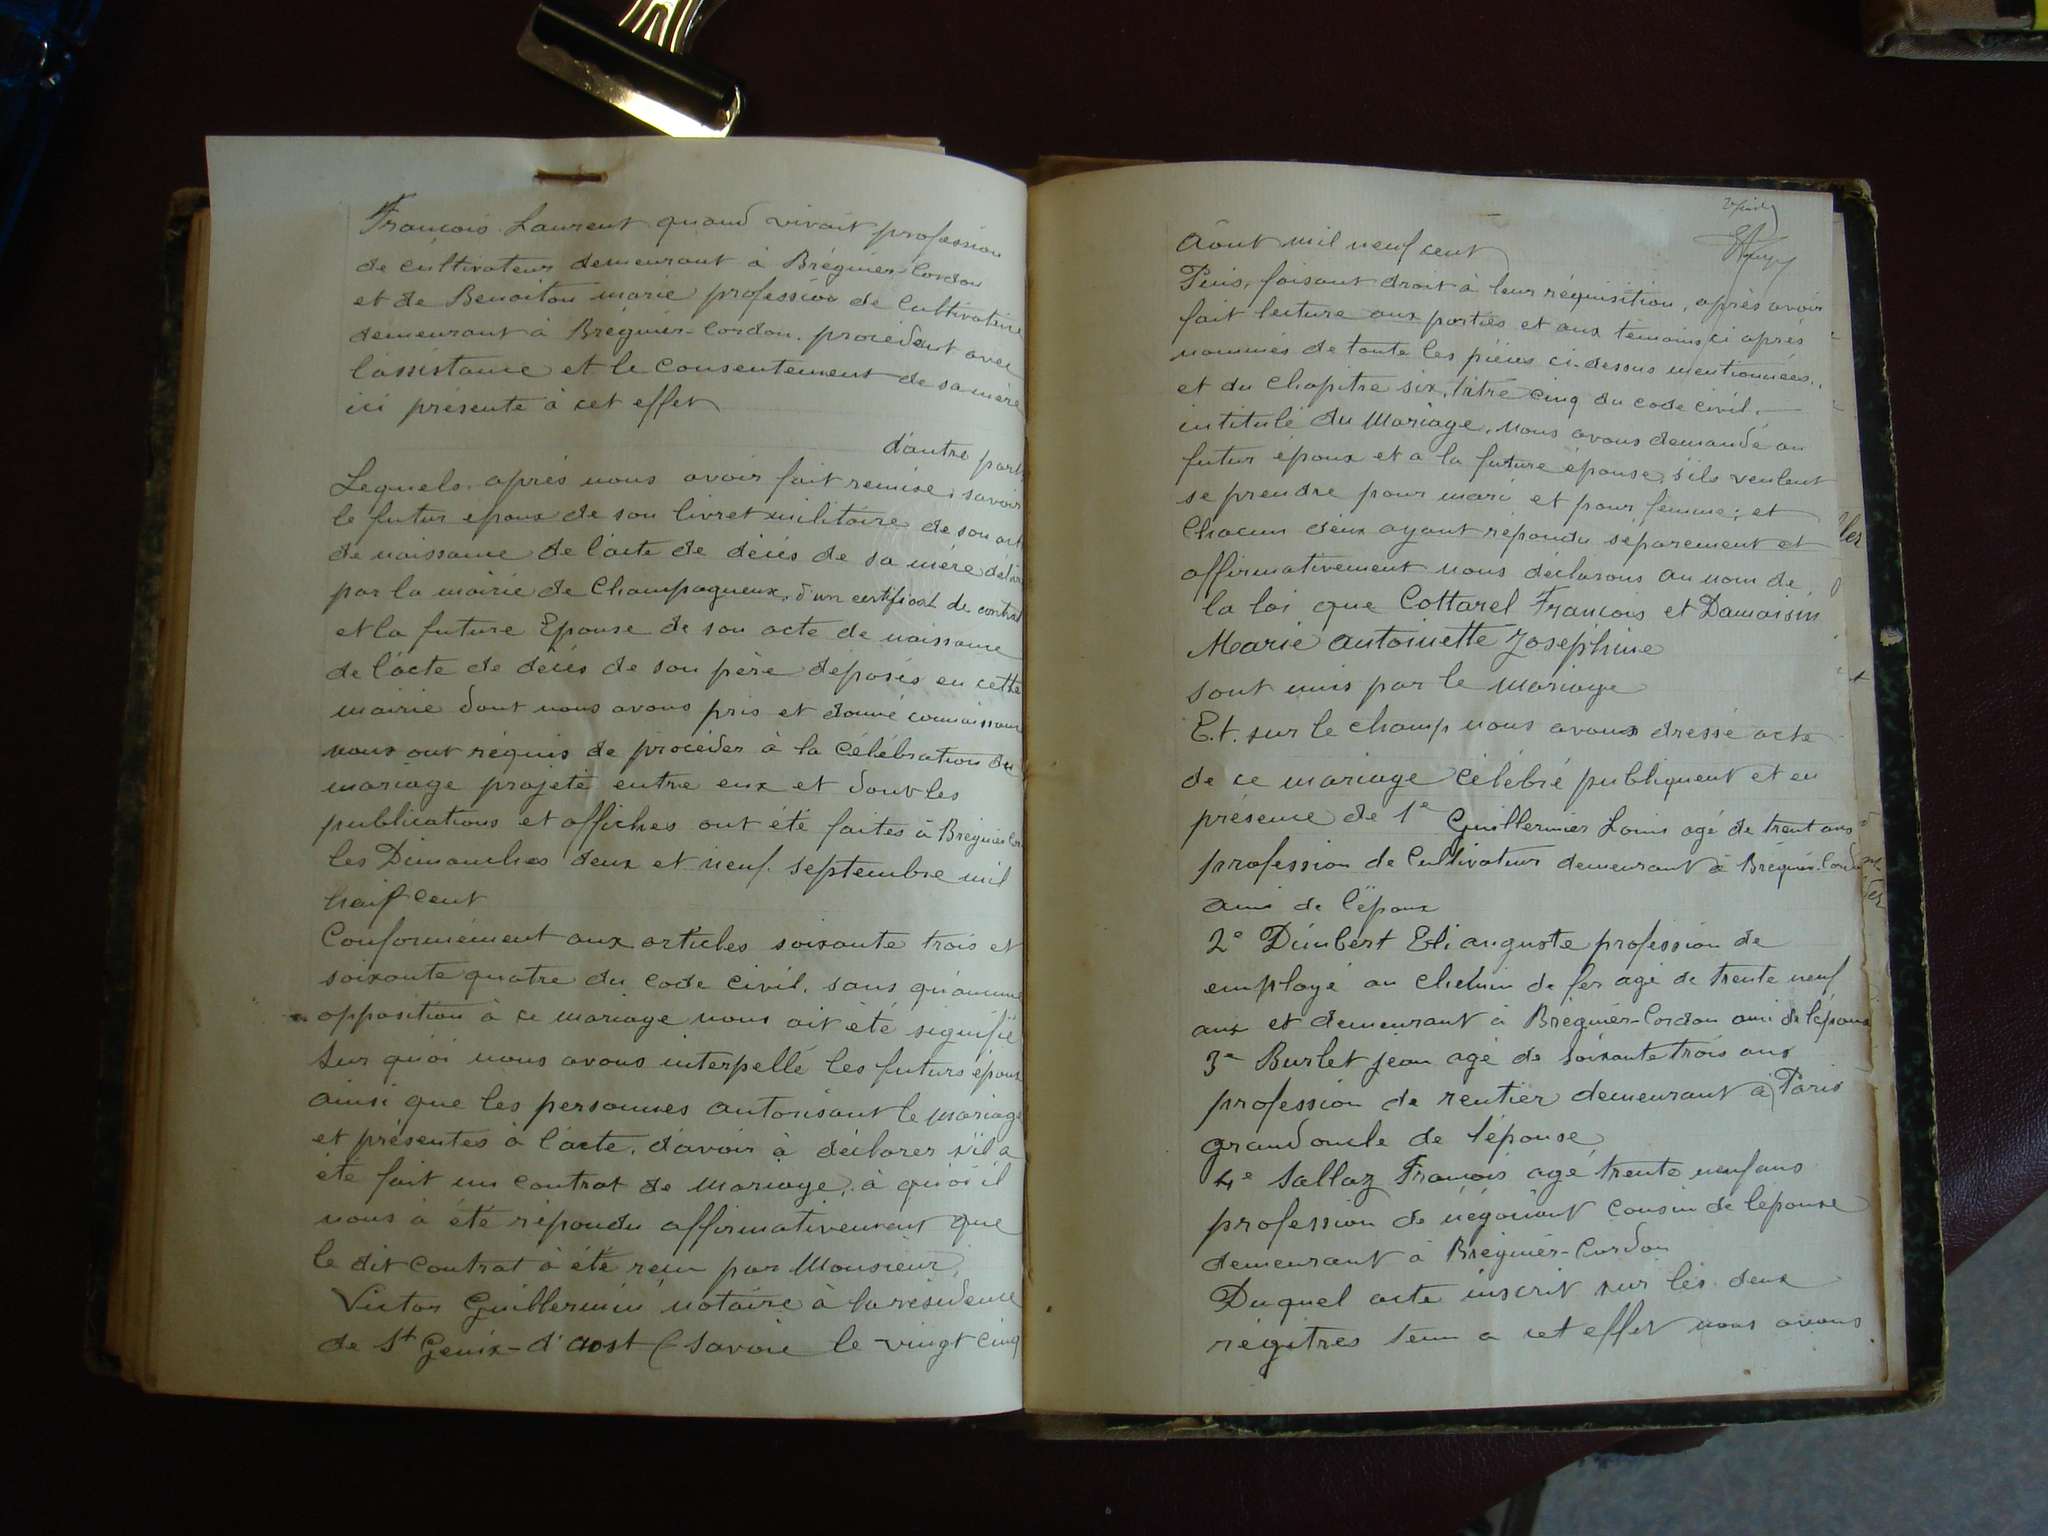 François Laurent quand vivait profession
de cultivateur demeurant à Brégnier-Cordon
et de Benoiton marie profession de Cultivatrice
demeurant à Brégnier-Cordon. procédant avec
l'assistance et le Consentement de sa mère
ici présente à cet effet
d'autre part
Lequels. après nous avoir fait remise, savoir
le futur epoux de son livret militaire de son act
de naissance de l'acte de décés de sa mére délivr
par la mairie de Champagneux, d'un certificat de contrat
et la future Epouse de son acte de naissance
de l'acte de décés de son père déposés en cette
mairie dont nous avons pris et donné connaissance
nous ont réquis de procéder à la célébration du
mariage projeté entre eux et dont les
publications et affiches ont été faites à Brégnier Cor
les Dimanches deux et neuf. septembre mil
cent
Conformément aux articles soixante trois et
soixante quatre du code civil. sans qu'aucune
opposition à ce mariage nous ait été signifié
Sur quoi nous avons interpellé les futurs époux
ainsi que les personnes autorisant le mariage
et présentes à l'acte, d'avoir à déclarer s'il a
été fait un contrat de mariage, à quoi il
nous à été répondu affirmativement que
le dit contrat à été recu par Monsieur
Victor Guillermin notaire à la résidence
de St Genix-d'aost (Savoie le vingt cinq
Août mil neuf cent
Puis, faisant droit à leur réquisition, après avoir
fait lecture aux parties et aux témoins ci après
nommés de toute les pièces ci-dessus mentionnées.
et du Chapitre six, titre cinq du code civil.
intitulé du Mariage, nous avons demandé au
futur époux et a la future épouse, s'ils veulent
se prendre pour mari et pour femme; et
Chacun d'eux ayant répondu séparement et
affirmativement nous déclarons au nom de
la loi que Cottarel François et Damaisin
Marie Antoinette Joséphine
sont unis par le mariage
E.t. sur le champ nous avons dressé acte
de ce mariage célébré publiquent et en
présence de 1e Guillermier Louis agé de trent ans
profession de Cultivateur demeurant à Brégnier-Cordon
ami de l'époux
2e Dimbert Eli auguste profession de
employé au Chemin de fer agé de trente neuf
ans et demeurant à Brégnier-Cordon ami de l'époux
3e Burlet jean agé de soixante trois ans
profession de rentier demeurant à Paris
grand oncle de l'épouse
4e Sallaz François agé trente neuf ans
profession de négociant cousin de l'épouse
demeurant à Brégnier-Cordon
Duquel acte inscrit sur les deux
régitres tenu a cet effet nous avons